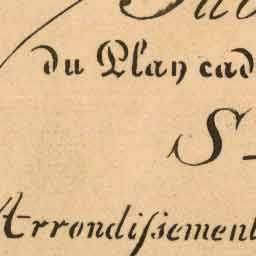 du Plan cad
S
Arrondiſsement